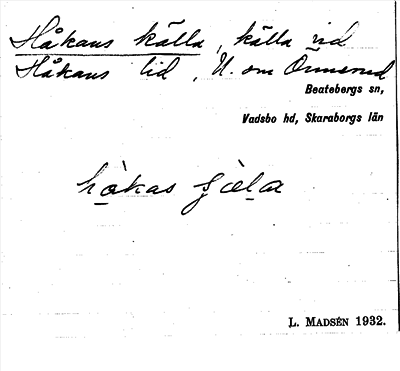 Håkans källa, källa vid
Håkans lid, U. om Örmerud
Beatebergs sn,
Vadsbo hd, Skaraborgs län
L. MADSÉN 1932.